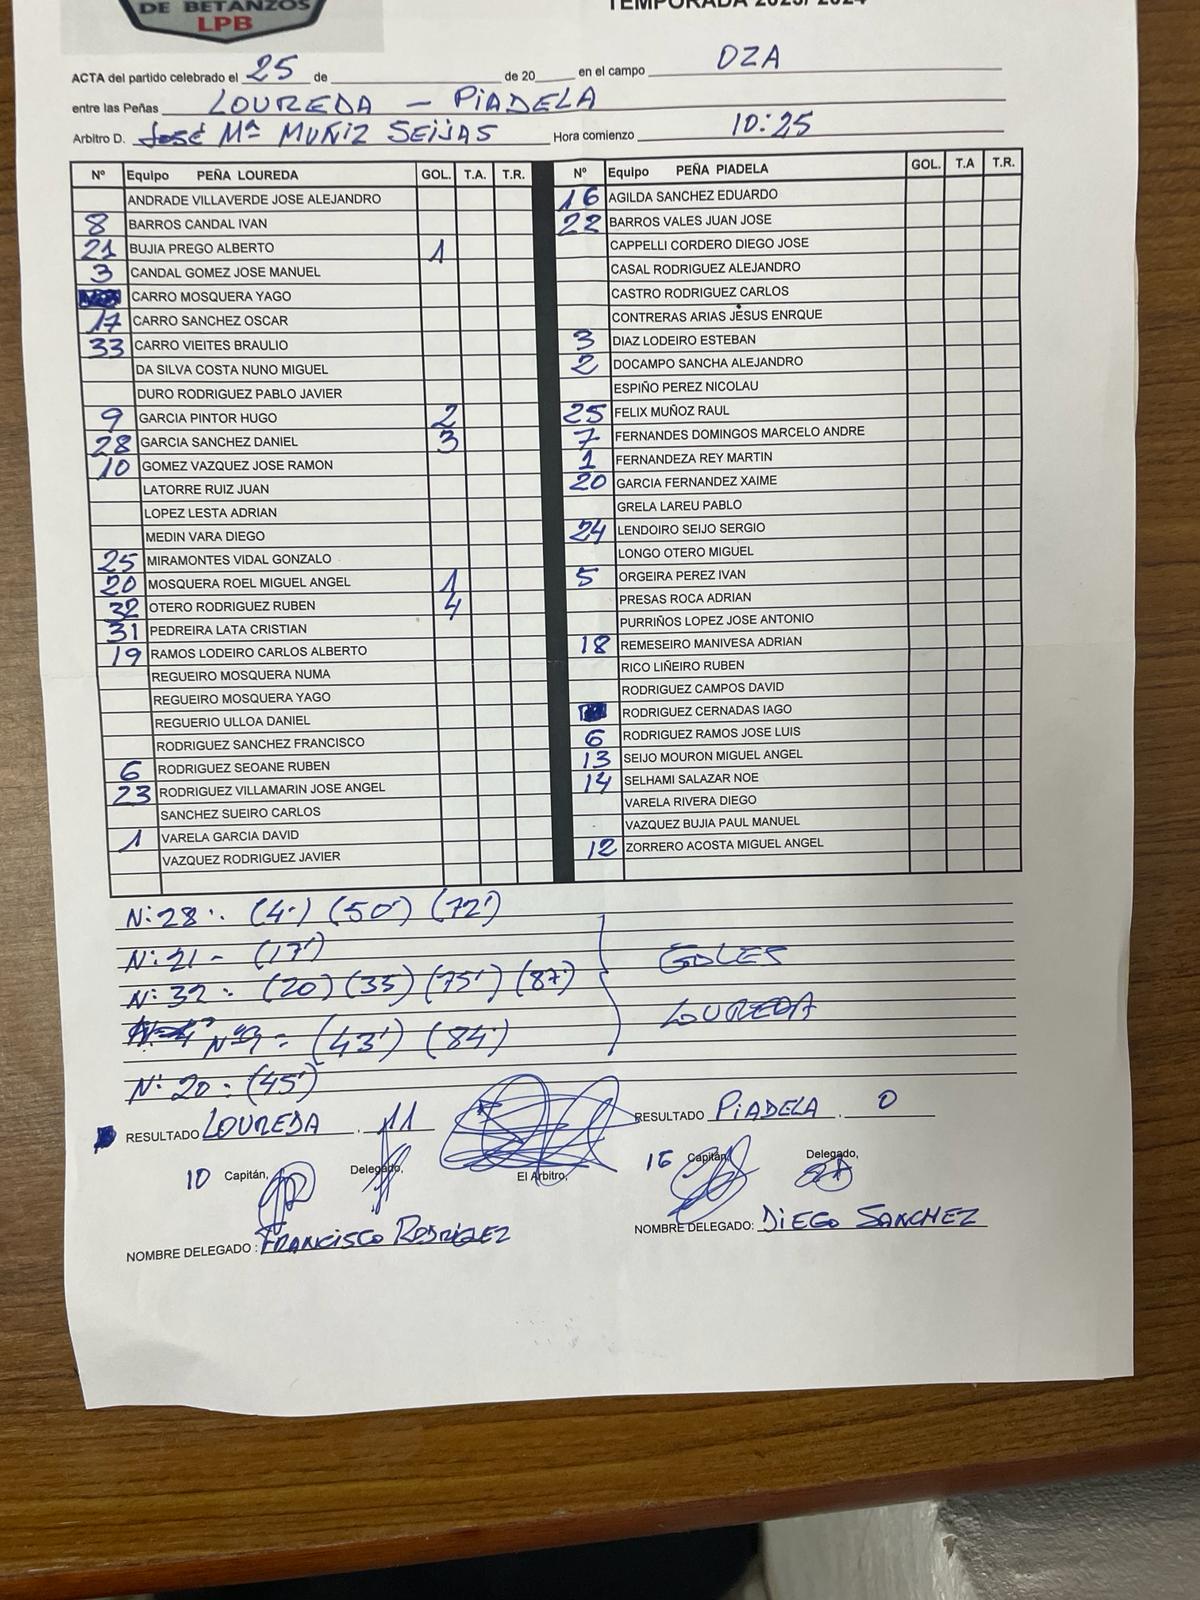 DE BETANZOS
LPB
TEMPORADA 2023/2024
ACTA del partido celebrado el 25 de de 20 en el campo OZA
entre las Peñas LOUREDA - PIADELA
Arbitro D. José Mª MUÑIZ SEIJAS Hora comienzo 10:25
Nº Equipo PEÑA LOUREDA GOL. T.A. T.R.
ANDRADE VILLAVERDE JOSE ALEJANDRO
8 BARROS CANDAL IVAN
21 BUJIA PREGO ALBERTO 1
3 CANDAL GOMEZ JOSE MANUEL
CARRO MOSQUERA YAGO
17 CARRO SANCHEZ OSCAR
33 CARRO VIEITES BRAULIO
DA SILVA COSTA NUNO MIGUEL
DURO RODRIGUEZ PABLO JAVIER
9 GARCIA PINTOR HUGO 2
28 GARCIA SANCHEZ DANIEL 3
10 GOMEZ VAZQUEZ JOSE RAMON
LATORRE RUIZ JUAN
LOPEZ LESTA ADRIAN
MEDIN VARA DIEGO
25 MIRAMONTES VIDAL GONZALO
20 MOSQUERA ROEL MIGUEL ANGEL 1
32 OTERO RODRIGUEZ RUBEN 4
31 PEDREIRA LATA CRISTIAN
19 RAMOS LODEIRO CARLOS ALBERTO
REGUEIRO MOSQUERA NUMA
REGUEIRO MOSQUERA YAGO
REGUERIO ULLOA DANIEL
RODRIGUEZ SANCHEZ FRANCISCO
6 RODRIGUEZ SEOANE RUBEN
23 RODRIGUEZ VILLAMARIN JOSE ANGEL
SANCHEZ SUEIRO CARLOS
1 VARELA GARCIA DAVID
VAZQUEZ RODRIGUEZ JAVIER
Nº Equipo PEÑA PIADELA GOL. T.A T.R.
16 AGILDA SANCHEZ EDUARDO
22 BARROS VALES JUAN JOSE
CAPPELLI CORDERO DIEGO JOSE
CASAL RODRIGUEZ ALEJANDRO
CASTRO RODRIGUEZ CARLOS
CONTRERAS ARIAS JESUS ENRQUE
3 DIAZ LODEIRO ESTEBAN
2 DOCAMPO SANCHA ALEJANDRO
ESPIÑO PEREZ NICOLAU
25 FELIX MUÑOZ RAUL
7 FERNANDES DOMINGOS MARCELO ANDRE
1 FERNANDEZA REY MARTIN
20 GARCIA FERNANDEZ XAIME
GRELA LAREU PABLO
24 LENDOIRO SEIJO SERGIO
LONGO OTERO MIGUEL
5 ORGEIRA PEREZ IVAN
PRESAS ROCA ADRIAN
PURRIÑOS LOPEZ JOSE ANTONIO
18 REMESEIRO MANIVESA ADRIAN
RICO LIÑEIRO RUBEN
RODRIGUEZ CAMPOS DAVID
RODRIGUEZ CERNADAS IAGO
6 RODRIGUEZ RAMOS JOSE LUIS
13 SEIJO MOURON MIGUEL ANGEL
14 SELHAMI SALAZAR NOE
VARELA RIVERA DIEGO
VAZQUEZ BUJIA PAUL MANUEL
12 ZORRERO ACOSTA MIGUEL ANGEL
Nº 28 : (4') (50') (72')
Nº 21 - (17')
Nº 32 - (20) (35) (75') (87')
Nº 9 = (43') (84')
Nº 20 = (45')
GOLES
LOUREDA
RESULTADO LOUREDA . 11
RESULTADO PIADELA . 0
10 Capitán, Delegado, El Arbitro, 16 Capitán, Delegado,
NOMBRE DELEGADO : FRANCISCO RODRIGUEZ
NOMBRE DELEGADO: DIEGO SANCHEZ